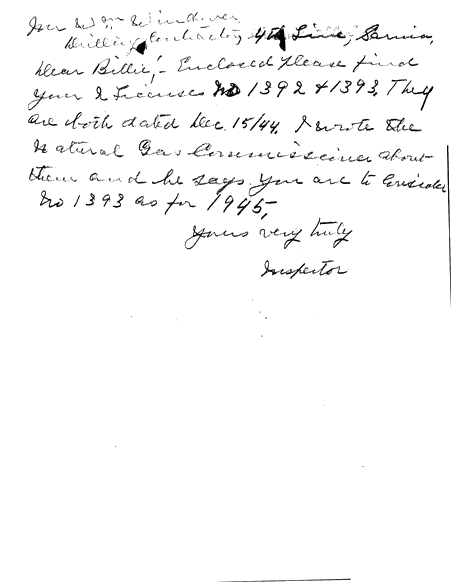 Mr Wm Windover
Drilling Contractor, 4th Line, Sarnia,
Dear Billie,- Enclosed please find
your 2 Licenses No 1392 & 1393, They
are both dated Dec. 15/44, I wrote the
Natural Gas Commissioner about
them and he says you are to consider
No 1393 as for 1945,
Yours very truly
Inspector